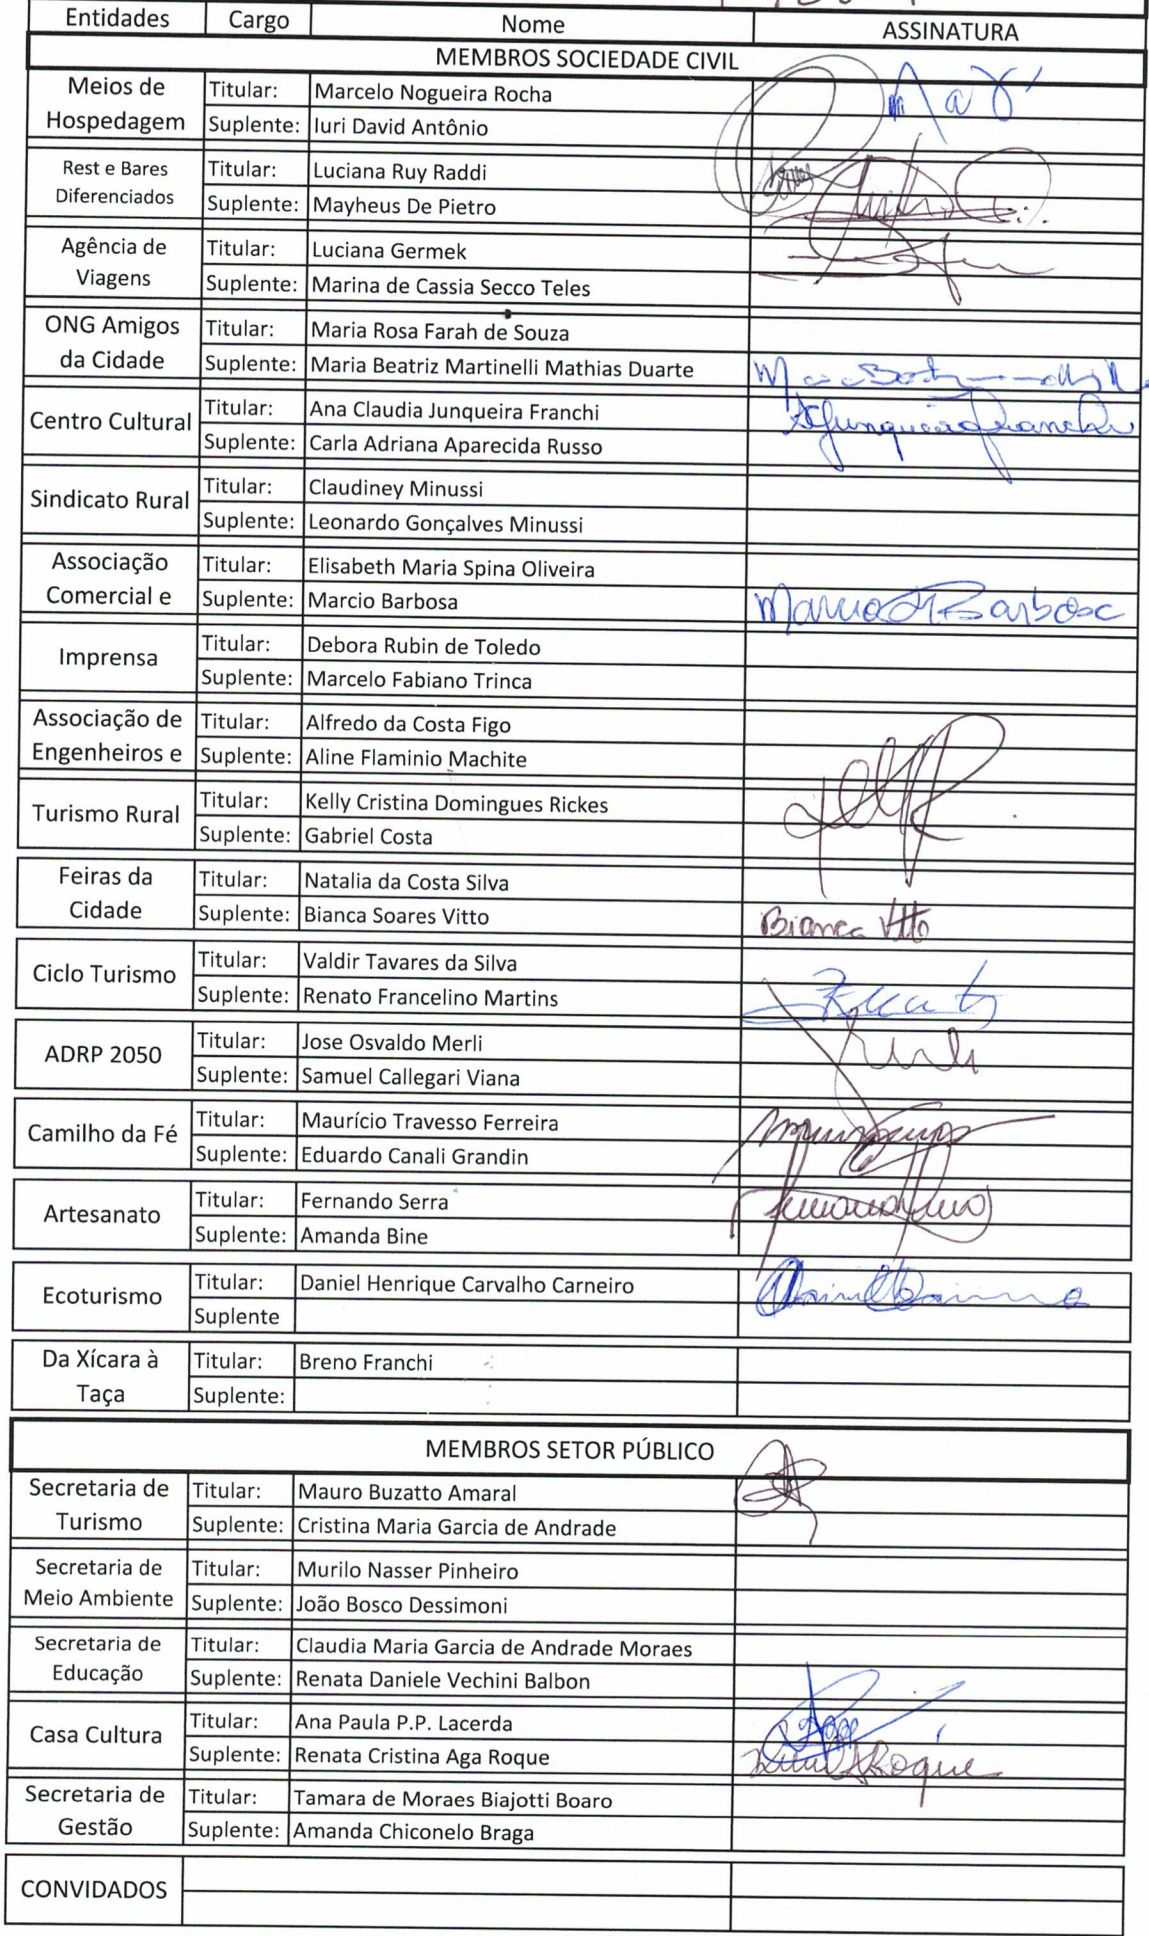 Entidades Cargo Nome ASSINATURA
MEMBROS SOCIEDADE CIVIL
Meios de Hospedagem
Titular: Marcelo Nogueira Rocha
Suplente: Iuri David Antônio
Rest e Bares Diferenciados
Titular: Luciana Ruy Raddi
Suplente: Mayheus De Pietro
Agência de Viagens
Titular: Luciana Germek
Suplente: Marina de Cassia Secco Teles
ONG Amigos da Cidade
Titular: Maria Rosa Farah de Souza
Suplente: Maria Beatriz Martinelli Mathias Duarte
Centro Cultural
Titular: Ana Claudia Junqueira Franchi
Suplente: Carla Adriana Aparecida Russo
Sindicato Rural
Titular: Claudiney Minussi
Suplente: Leonardo Gonçalves Minussi
Associação Comercial e
Titular: Elisabeth Maria Spina Oliveira
Suplente: Marcio Barbosa Barbosa
Imprensa
Titular: Debora Rubin de Toledo
Suplente: Marcelo Fabiano Trinca
Associação de Engenheiros e
Titular: Alfredo da Costa Figo
Suplente: Aline Flaminio Machite
Turismo Rural
Titular: Kelly Cristina Domingues Rickes
Suplente: Gabriel Costa
Feiras da Cidade
Titular: Natalia da Costa Silva
Suplente: Bianca Soares Vitto Bianca Vitto
Ciclo Turismo
Titular: Valdir Tavares da Silva
Suplente: Renato Francelino Martins
ADRP 2050
Titular: Jose Osvaldo Merli
Suplente: Samuel Callegari Viana
Camilho da Fé
Titular: Maurício Travesso Ferreira
Suplente: Eduardo Canali Grandin
Artesanato
Titular: Fernando Serra
Suplente: Amanda Bine
Ecoturismo
Titular: Daniel Henrique Carvalho Carneiro
Suplente
Da Xícara à Taça
Titular: Breno Franchi
Suplente:
MEMBROS SETOR PÚBLICO
Secretaria de Turismo
Titular: Mauro Buzatto Amaral
Suplente: Cristina Maria Garcia de Andrade
Secretaria de Meio Ambiente
Titular: Murilo Nasser Pinheiro
Suplente: João Bosco Dessimoni
Secretaria de Educação
Titular: Claudia Maria Garcia de Andrade Moraes
Suplente: Renata Daniele Vechini Balbon
Casa Cultura
Titular: Ana Paula P.P. Lacerda
Suplente: Renata Cristina Aga Roque Roque
Secretaria de Gestão
Titular: Tamara de Moraes Biajotti Boaro
Suplente: Amanda Chiconelo Braga
CONVIDADOS